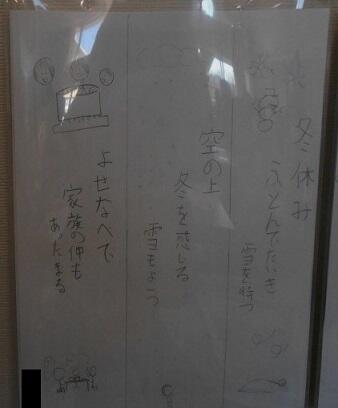 冬休み
ふとんでたいき
雪を待つ
空の上
冬を感じる
雪もよう
よせなべで
家族の仲も
あったまる